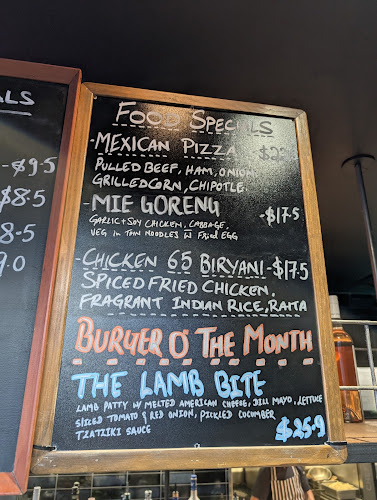 ALS
-$9.5
$8.5
8.5
9.0
FOOD SPECIALS
-MEXICAN PIZZA
PULLED BEEF, HAM, ONION,
GRILLED CORN, CHIPOTLE.
-MIE GORENG -$17.5
GARLIC+SOY CHICKEN, CABBAGE,
VEG IN THIN NOODLES W FRIED EGG
-CHICKEN 65 BIRYANI-$17.5
SPICED FRIED CHICKEN,
FRAGRANT INDIAN RICE, RAITA
BURGER O' THE MONTH
THE LAMB BITE
LAMB PATTY W MELTED AMERICAN CHEESE, DILL MAYO, LETTUCE
SLICED TOMATO & RED ONION, PICKLED CUCUMBER
TZATZIKI SAUCE $25.9